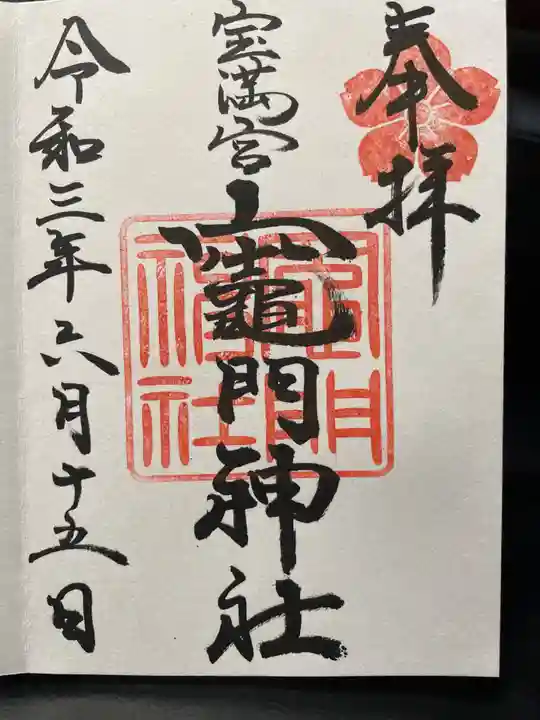 奉拝
宝満宮
竈門神社
令和三年六月十五日
竈門
神社